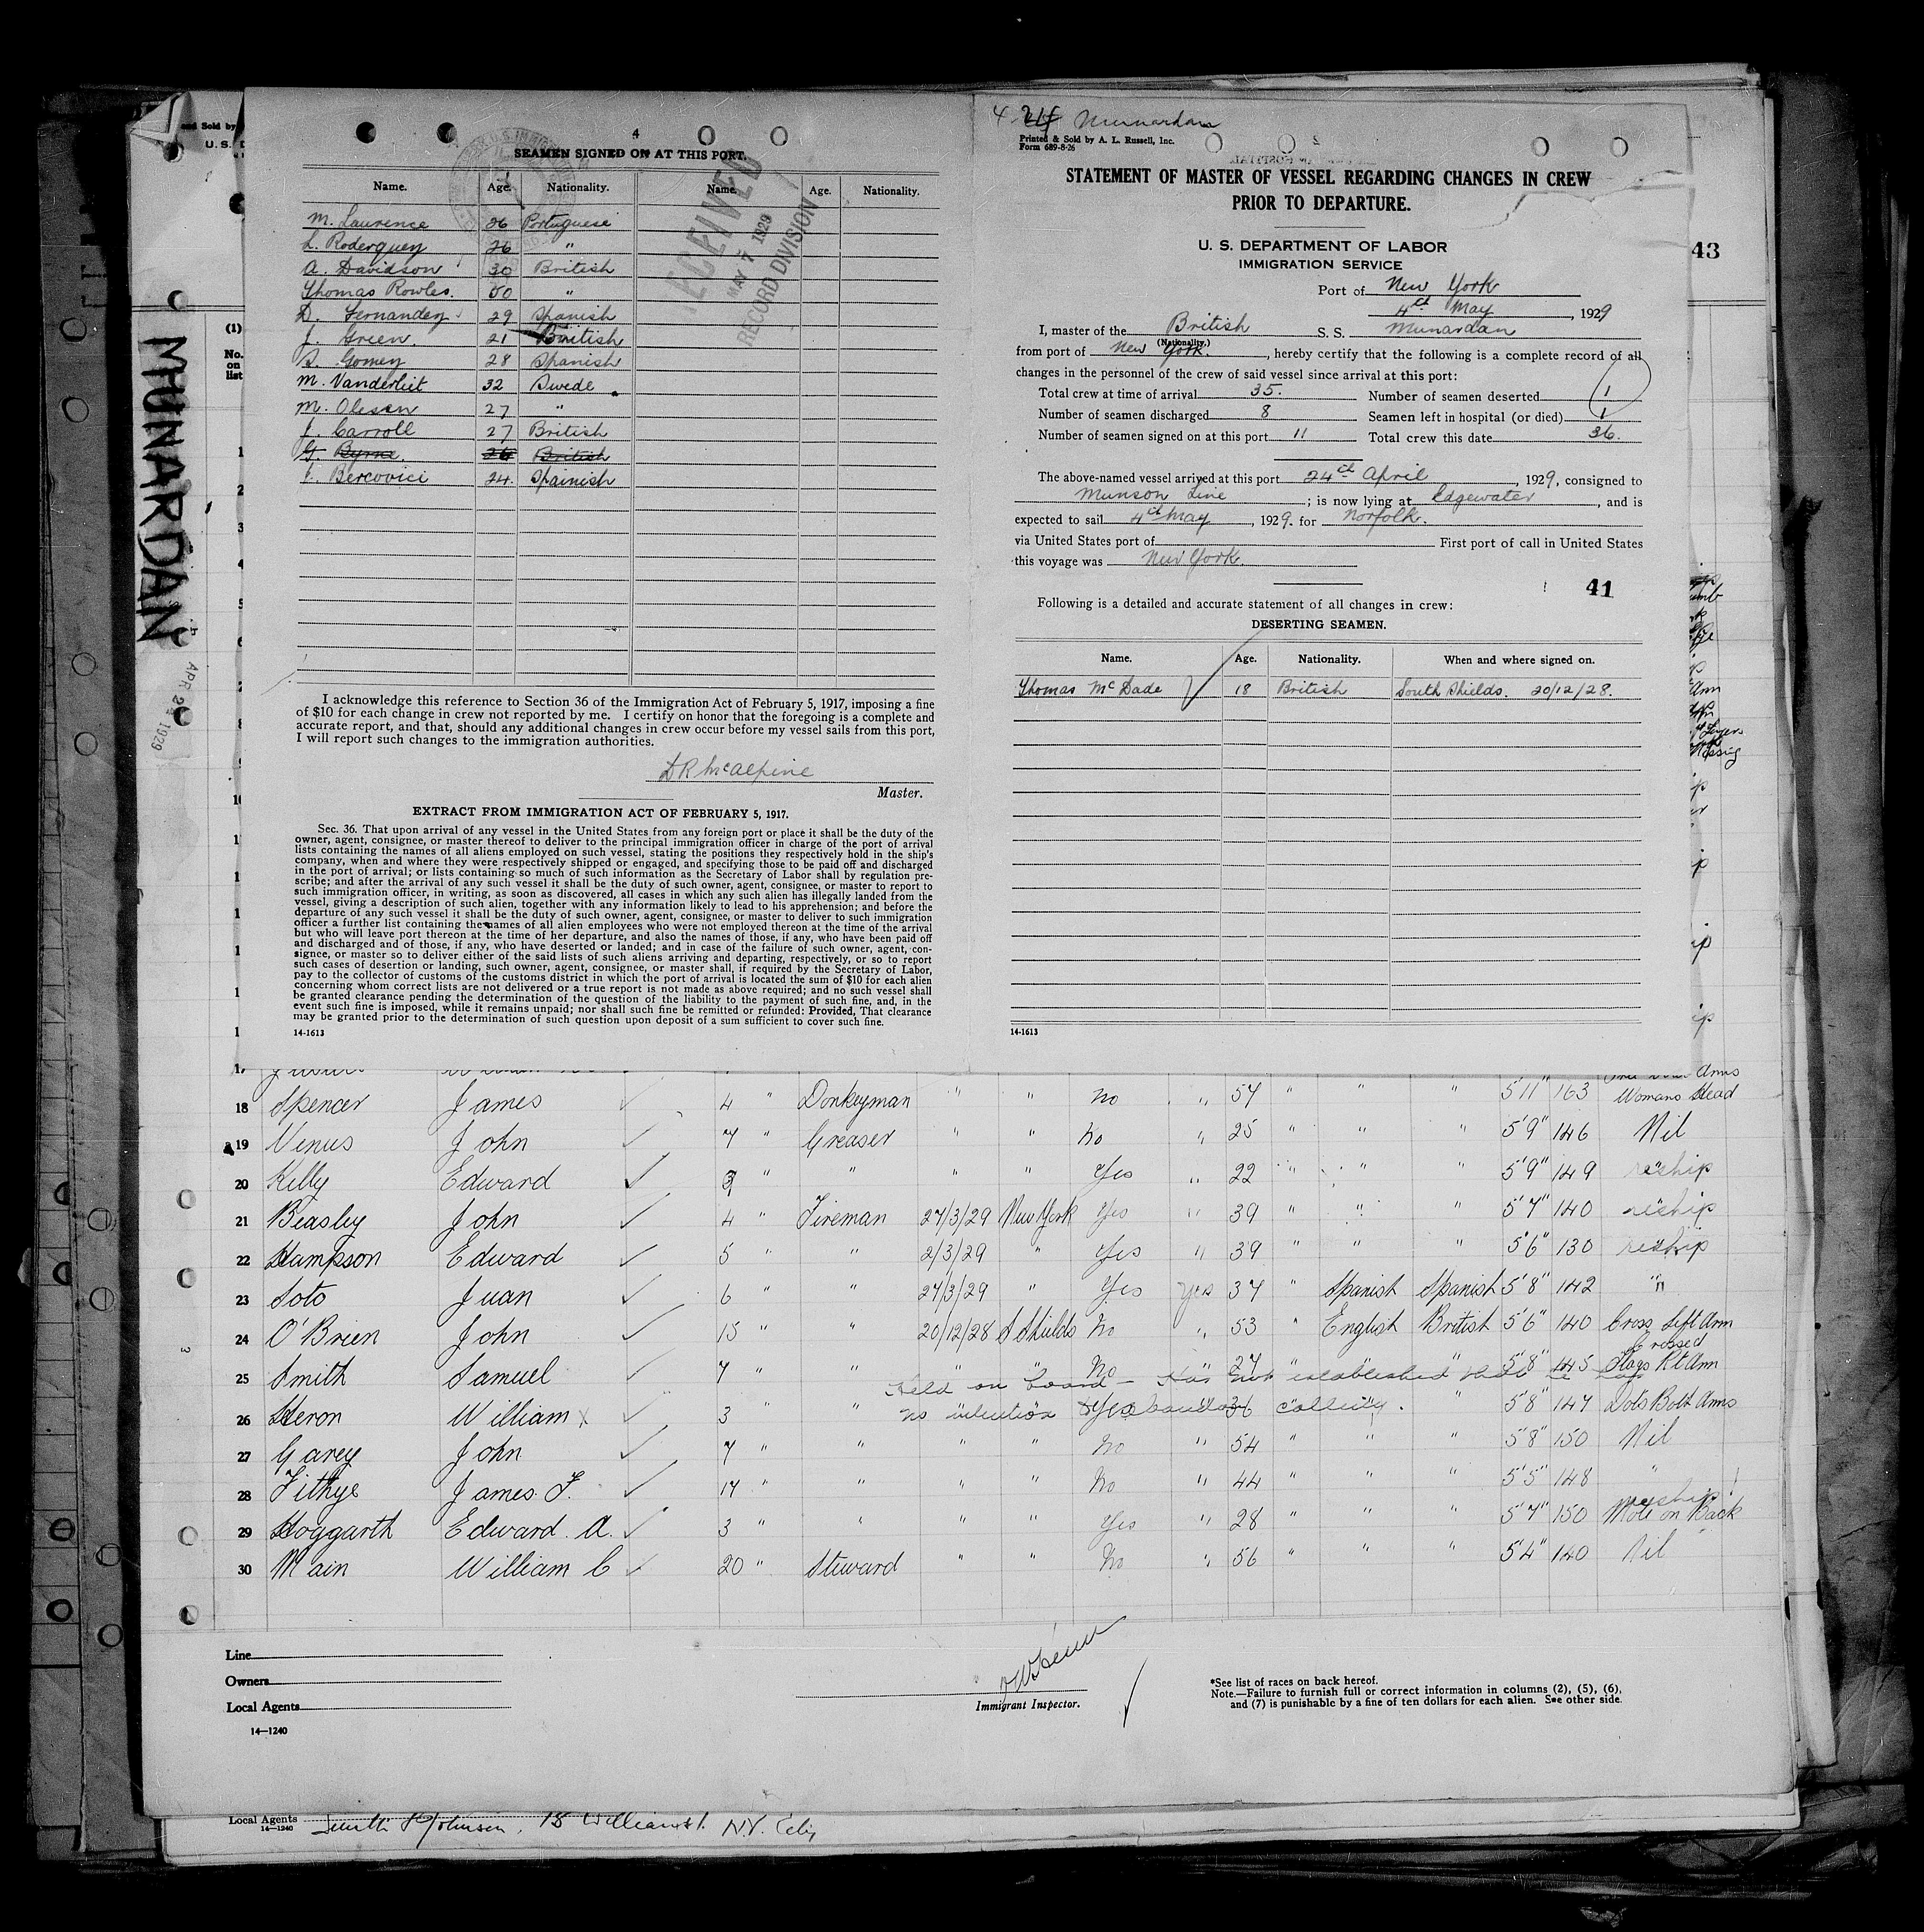 4
SEAMEN SIGNED ON AT THIS PORT.
Name. Age. Nationality. Name. Age. Nationality.
M. Laurence 26 Portuguese
L. Roderquey 26 "
A. Davidson 30 British
Thomas Rowles. 50 "
D. Fernandez 29 Spanish
J. Green 21 British
S. Gomey 28 Spanish
M. Vanderliet 32 Swede
M. Olesen 27 "
J. Carroll 27 British
G. Byrne. 26 British
Bercovici 24. Spainish
RECEIVED
MAY 7 1929
RECORD DIVISION
I acknowledge this reference to Section 36 of the Immigration Act of February 5, 1917, imposing a fine
of $10 for each change in crew not reported by me. I certify on honor that the foregoing is a complete and
accurate report, and that, should any additional changes in crew occur before my vessel sails from this port,
I will report such changes to the immigration authorities.
D R McAlpine
Master.
EXTRACT FROM IMMIGRATION ACT OF FEBRUARY 5, 1917.
Sec. 36. That upon arrival of any vessel in the United States from any foreign port or place it shall be the duty of the
owner, agent, consignee, or master thereof to deliver to the principal immigration officer in charge of the port of arrival
lists containing the names of all aliens employed on such vessel, stating the positions they respectively hold in the ship's
company, when and where they were respectively shipped or engaged, and specifying those to be paid off and discharged
in the port of arrival; or lists containing so much of such information as the Secretary of Labor shall by regulation pre-
scribe; and after the arrival of any such vessel it shall be the duty of such owner, agent, consignee, or master to report to
such immigration officer, in writing, as soon as discovered, all cases in which any such alien has illegally landed from the
vessel, giving a description of such alien, together with any information likely to lead to his apprehension; and before the
departure of any such vessel it shall be the duty of such owner, agent, consignee, or master to deliver to such immigration
officer a further list containing the names of all alien employees who were not employed thereon at the time of the arrival
but who will leave port thereon at the time of her departure, and also the names of those, if any, who have been paid off
and discharged and of those, if any, who have deserted or landed; and in case of the failure of such owner, agent, con-
signee, or master so to deliver either of the said lists of such aliens arriving and departing, respectively, or so to report
such cases of desertion or landing, such owner, agent, consignee, or master shall, if required by the Secretary of Labor,
pay to the collector of customs of the customs district in which the port of arrival is located the sum of $10 for each alien
concerning whom correct lists are not delivered or a true report is not made as above required; and no such vessel shall
be granted clearance pending the determination of the question of the liability to the payment of such fine, and, in the
event such fine is imposed, while it remains unpaid; nor shall such fine be remitted or refunded: Provided, That clearance
may be granted prior to the determination of such question upon deposit of a sum sufficient to cover such fine.
14-1613
Munardan
Printed & Sold by A. L. Russell, Inc.
Form 689-8-26
STATEMENT OF MASTER OF VESSEL REGARDING CHANGES IN CREW
PRIOR TO DEPARTURE.
U. S. DEPARTMENT OF LABOR
IMMIGRATION SERVICE
Port of New York
4th May, 1929
I, master of the British S. S. Munardan
(Nationality.)
from port of New York., hereby certify that the following is a complete record of all
changes in the personnel of the crew of said vessel since arrival at this port:
Total crew at time of arrival 35. Number of seamen deserted 1
Number of seamen discharged 8 Seamen left in hospital (or died) 1
Number of seamen signed on at this port 11 Total crew this date 36.
The above-named vessel arrived at this port 24th April, 1929, consigned to
Munson Line; is now lying at Edgewater, and is
expected to sail 4th May, 1929. for Norfolk.
via United States port of First port of call in United States
this voyage was New York.
41
Following is a detailed and accurate statement of all changes in crew:
DESERTING SEAMEN.
Name. Age. Nationality. When and where signed on.
Thomas McDade 18 British South Shields. 20/12/28.
14-1613
43
and Sold by
(1)
No.
on
list
MUNARDAN
APR 24 1929
Arms
18 Spencer James 4 " Donkeyman " " No " 57 " " " 5'11" 163 Womans Head
19 Venus John 7 " Greaser " " No " 25 " " " 5'9" 146 Nil
20 Kelly Edward 3 " " " " Yes " 22 " " " 5'9" 149 reship
21 Beasley John 4 " Fireman 27/3/29 New York Yes " 39 " " " 5'7" 140 reship
22 Hampson Edward 5 " " 2/3/29 " Yes " 39 " " " 5'6" 130 reship
23 Soto Juan 6 " " 27/3/29 " Yes yes 37 " Spanish Spanish 5'8" 142 "
24 O'Brien John 15 " " 20/12/28 S Shields No " 53 " English British 5'6" 140 Cross Left Arm
Crossed
25 Smith Samuel 7 " " " " No " 27 " " " 5'8" 145 Flags Rt Arm
Held on board - Has not established that he has
26 Heron William X 3 " " Yes 36 " 5'8" 147 Dots Both Arms
no intention of abandon calling.
27 Garey John 7 " " " " No " 54 " " " 5'8" 150 Nil
28 Fithye James F. 17 " " " " No " 44 " " " 5'5" 148 "
reship
29 Hoggarth Edward A. 3 " " " " Yes " 28 " " " 5'7" 150 Mole on Back
30 Main William C 20 " Steward " " No " 56 " " " 5'4" 140 Nil
Line
Owners
Local Agents
14—1240
Immigrant Inspector.
*See list of races on back hereof.
Note.—Failure to furnish full or correct information in columns (2), (5), (6),
and (7) is punishable by a fine of ten dollars for each alien. See other side.
Local Agents Smith & Johnson, 18 William St. N.Y. City
14—1240